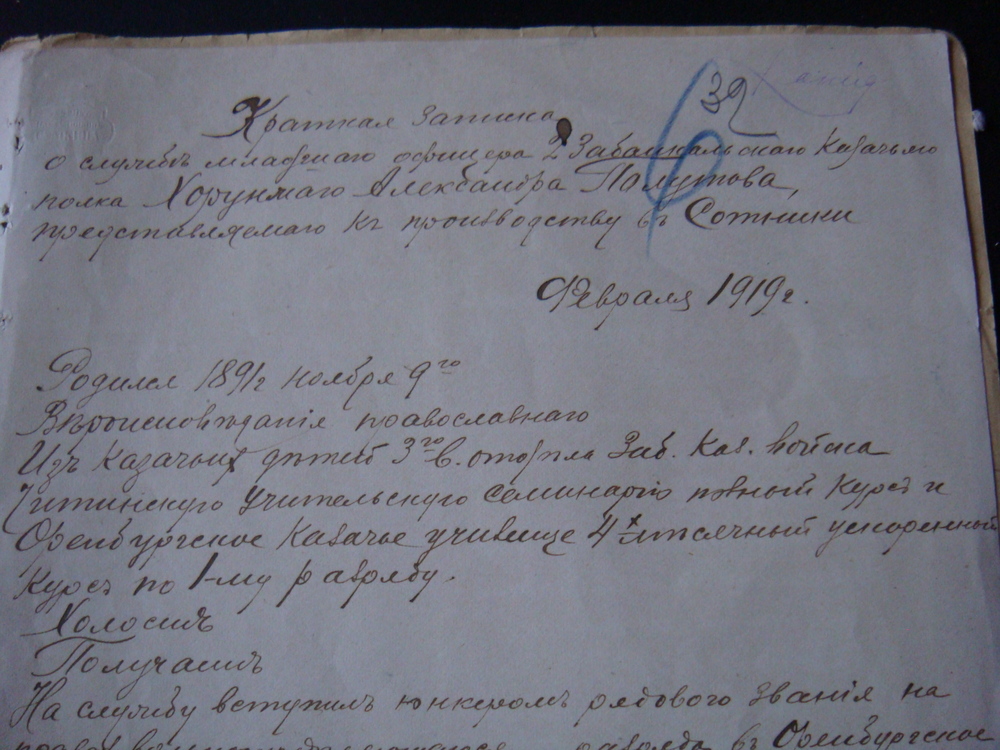 39
Краткая записка
о службѣ младшаго офицера 2 Забайкальскаго Казачьяго
полка Хорунжаго Александра Полутова,
представляемаго къ производству въ Сотники
Февраля 1919 г.
Родился 1891 г ноября 9го
Вѣроисповѣданія православнаго
Изъ казачьих дѣтей 3го в. отдѣла Заб. Каз. войска
Читинскую учительскую семинарію полный курсъ и
Оренбургское Казачье училище 4х мѣсячный ускоренный
курсъ по 1-му разряду.
Холостъ
Получаетъ
На службу вступилъ юнкеромъ рядового званія на
въ Оренбургское